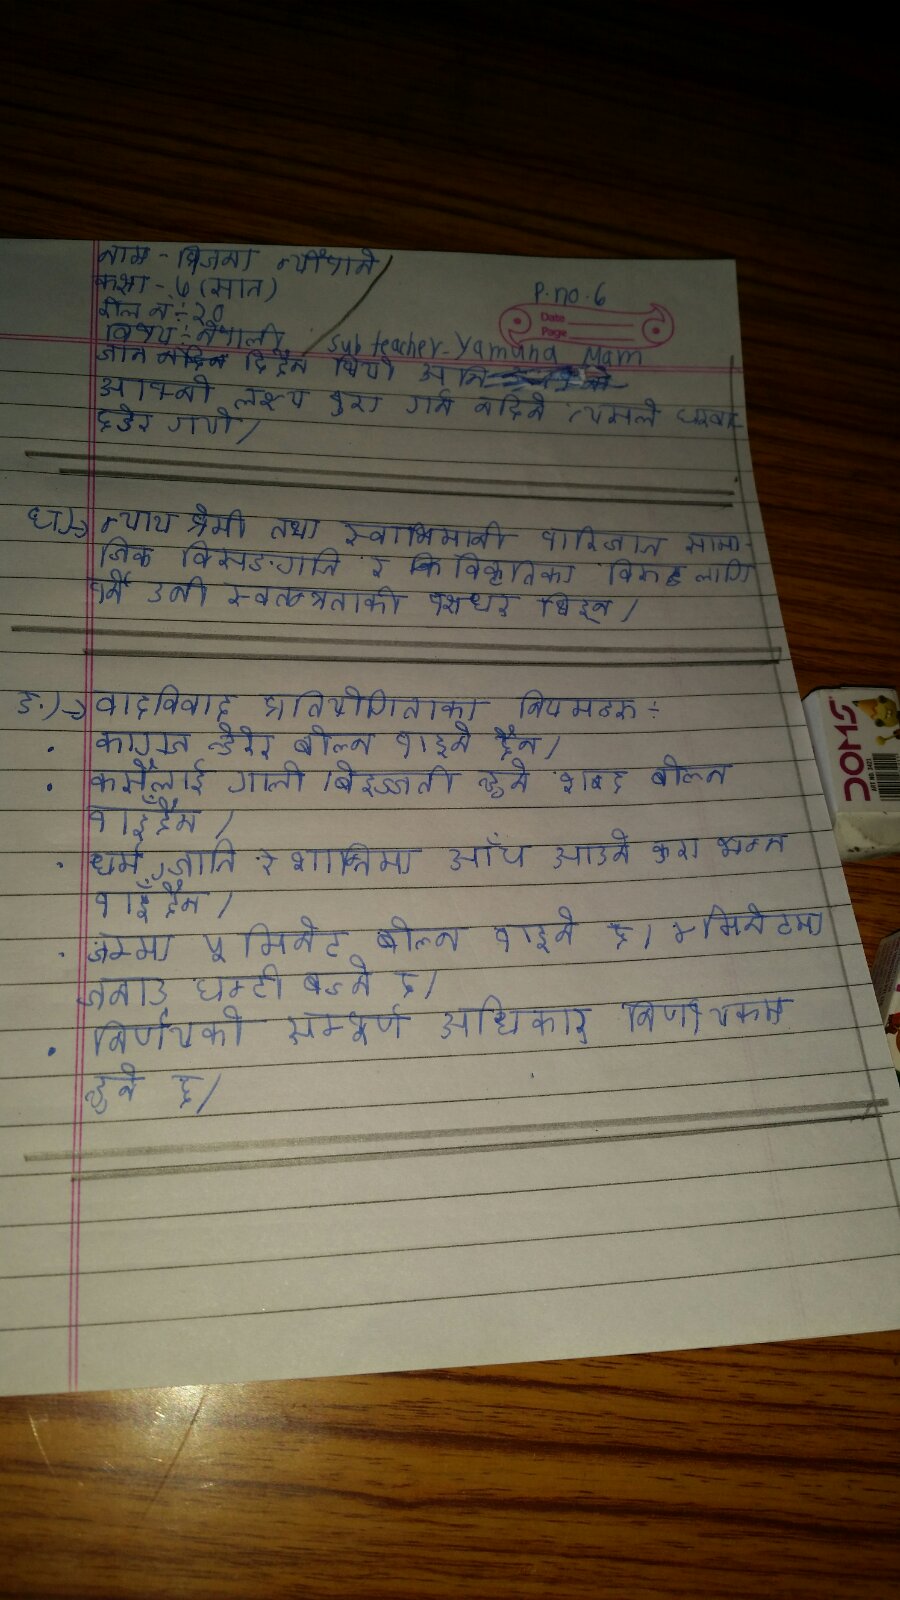 नाम - बिजमा न्यौपाने
कक्षा - ७ (सात)
रोल नं ÷ २०
विषय ÷ नेपाली
Sub teacher - Yamuna Mam
P.no. 6
Date
Page
जान नदिन दिदैन थियो अनि
आफ्नो लक्ष्य पुरा गर्न नदिने त्यसले घरबार
छडेर गयो।
घ) → न्याय प्रेमी तथा स्वाभिमानी पारिजात सामा-
जिक विसङ्गति र विकृतिका विरुद्ध लागि
पर्ने उनी स्वतन्त्रताकी पक्षधर थिइन्।
ङ.) → वादविवाद प्रतियोगिताका नियमहरु ÷
• कागज हेरेर बोल्न पाइने छैन।
• कसैलाई गाली बेइज्जती हुने शब्द बोल्न
पाइँदैन।
• धर्म, जाति र शान्तिमा आँच आउने कुरा भन्न
पाइँदैन।
• जम्मा ५ मिनेट बोल्न पाइने छ। ४ मिनेटमा
जनाउ घण्टी बज्ने छ।
• निर्णयको सम्पूर्ण अधिकार निर्णायकमा
हुने छ।
DOMS